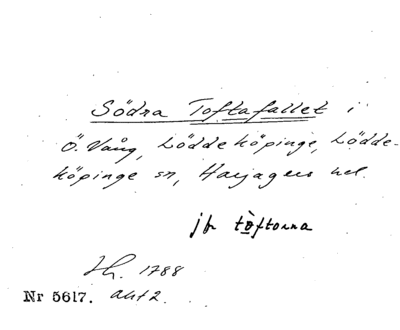 Södra Toftafallet i
Ö. Vång, Löddeköpinge, Lödde-
köpinge sn, Harjagers hd.
jfr toftorna
Sk. 1788
Nr 5617. akt 2.